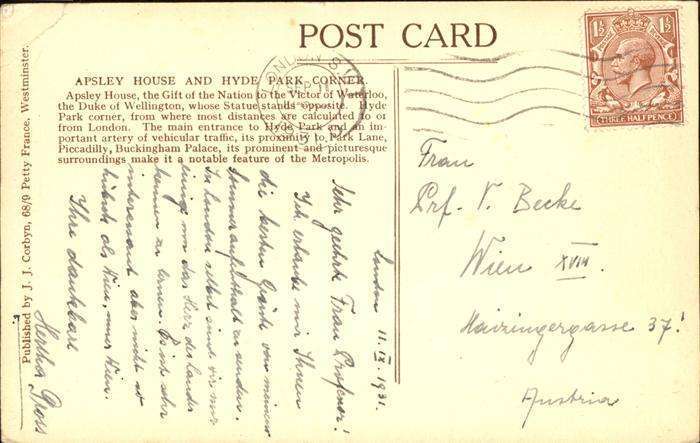 POST CARD
APSLEY HOUSE AND HYDE PARK CORNER.
Apsley House, the Gift of the Nation to the Victor of Waterloo,
the Duke of Wellington, whose Statue stands opposite. Hyde
Park corner, from where most distances are calculated to or
from London. The main entrance to Hyde Park and an im-
portant artery of vehicular traffic, its proximity to Park Lane,
Piccadilly, Buckingham Palace, its prominent and picturesque
surroundings make it a notable feature of the Metropolis.
Published by J. J. Corbyn, 68/9 Petty France, Westminster.
1½ 1½
THREE HALFPENCE
Frau
Prf. V. Becke
Wien XVIII.
Haizingergasse 37!
Austria
London 11. IX. 1931.
Sehr geehrte Frau Professor!
Ich erlaube mir Ihnen
die besten Grüsse von meinem
Sommeraufenthalt zu senden.
In London selbst sind wir nur
einige um das Herz des Landes
kennen zu lernen. Es ist sehr
interessant aber nicht so
hübsch als Wien, unser Wien.
Ihre dankbare
Hertha Gross